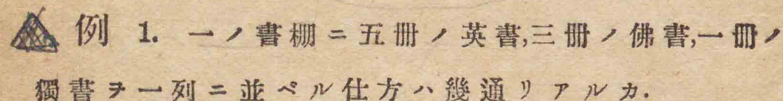 例 1. 一ノ書棚ニ五冊ノ英書,三冊ノ佛書,一冊ノ
獨書ヲ一列ニ並ベル仕方ハ幾通リアルカ.